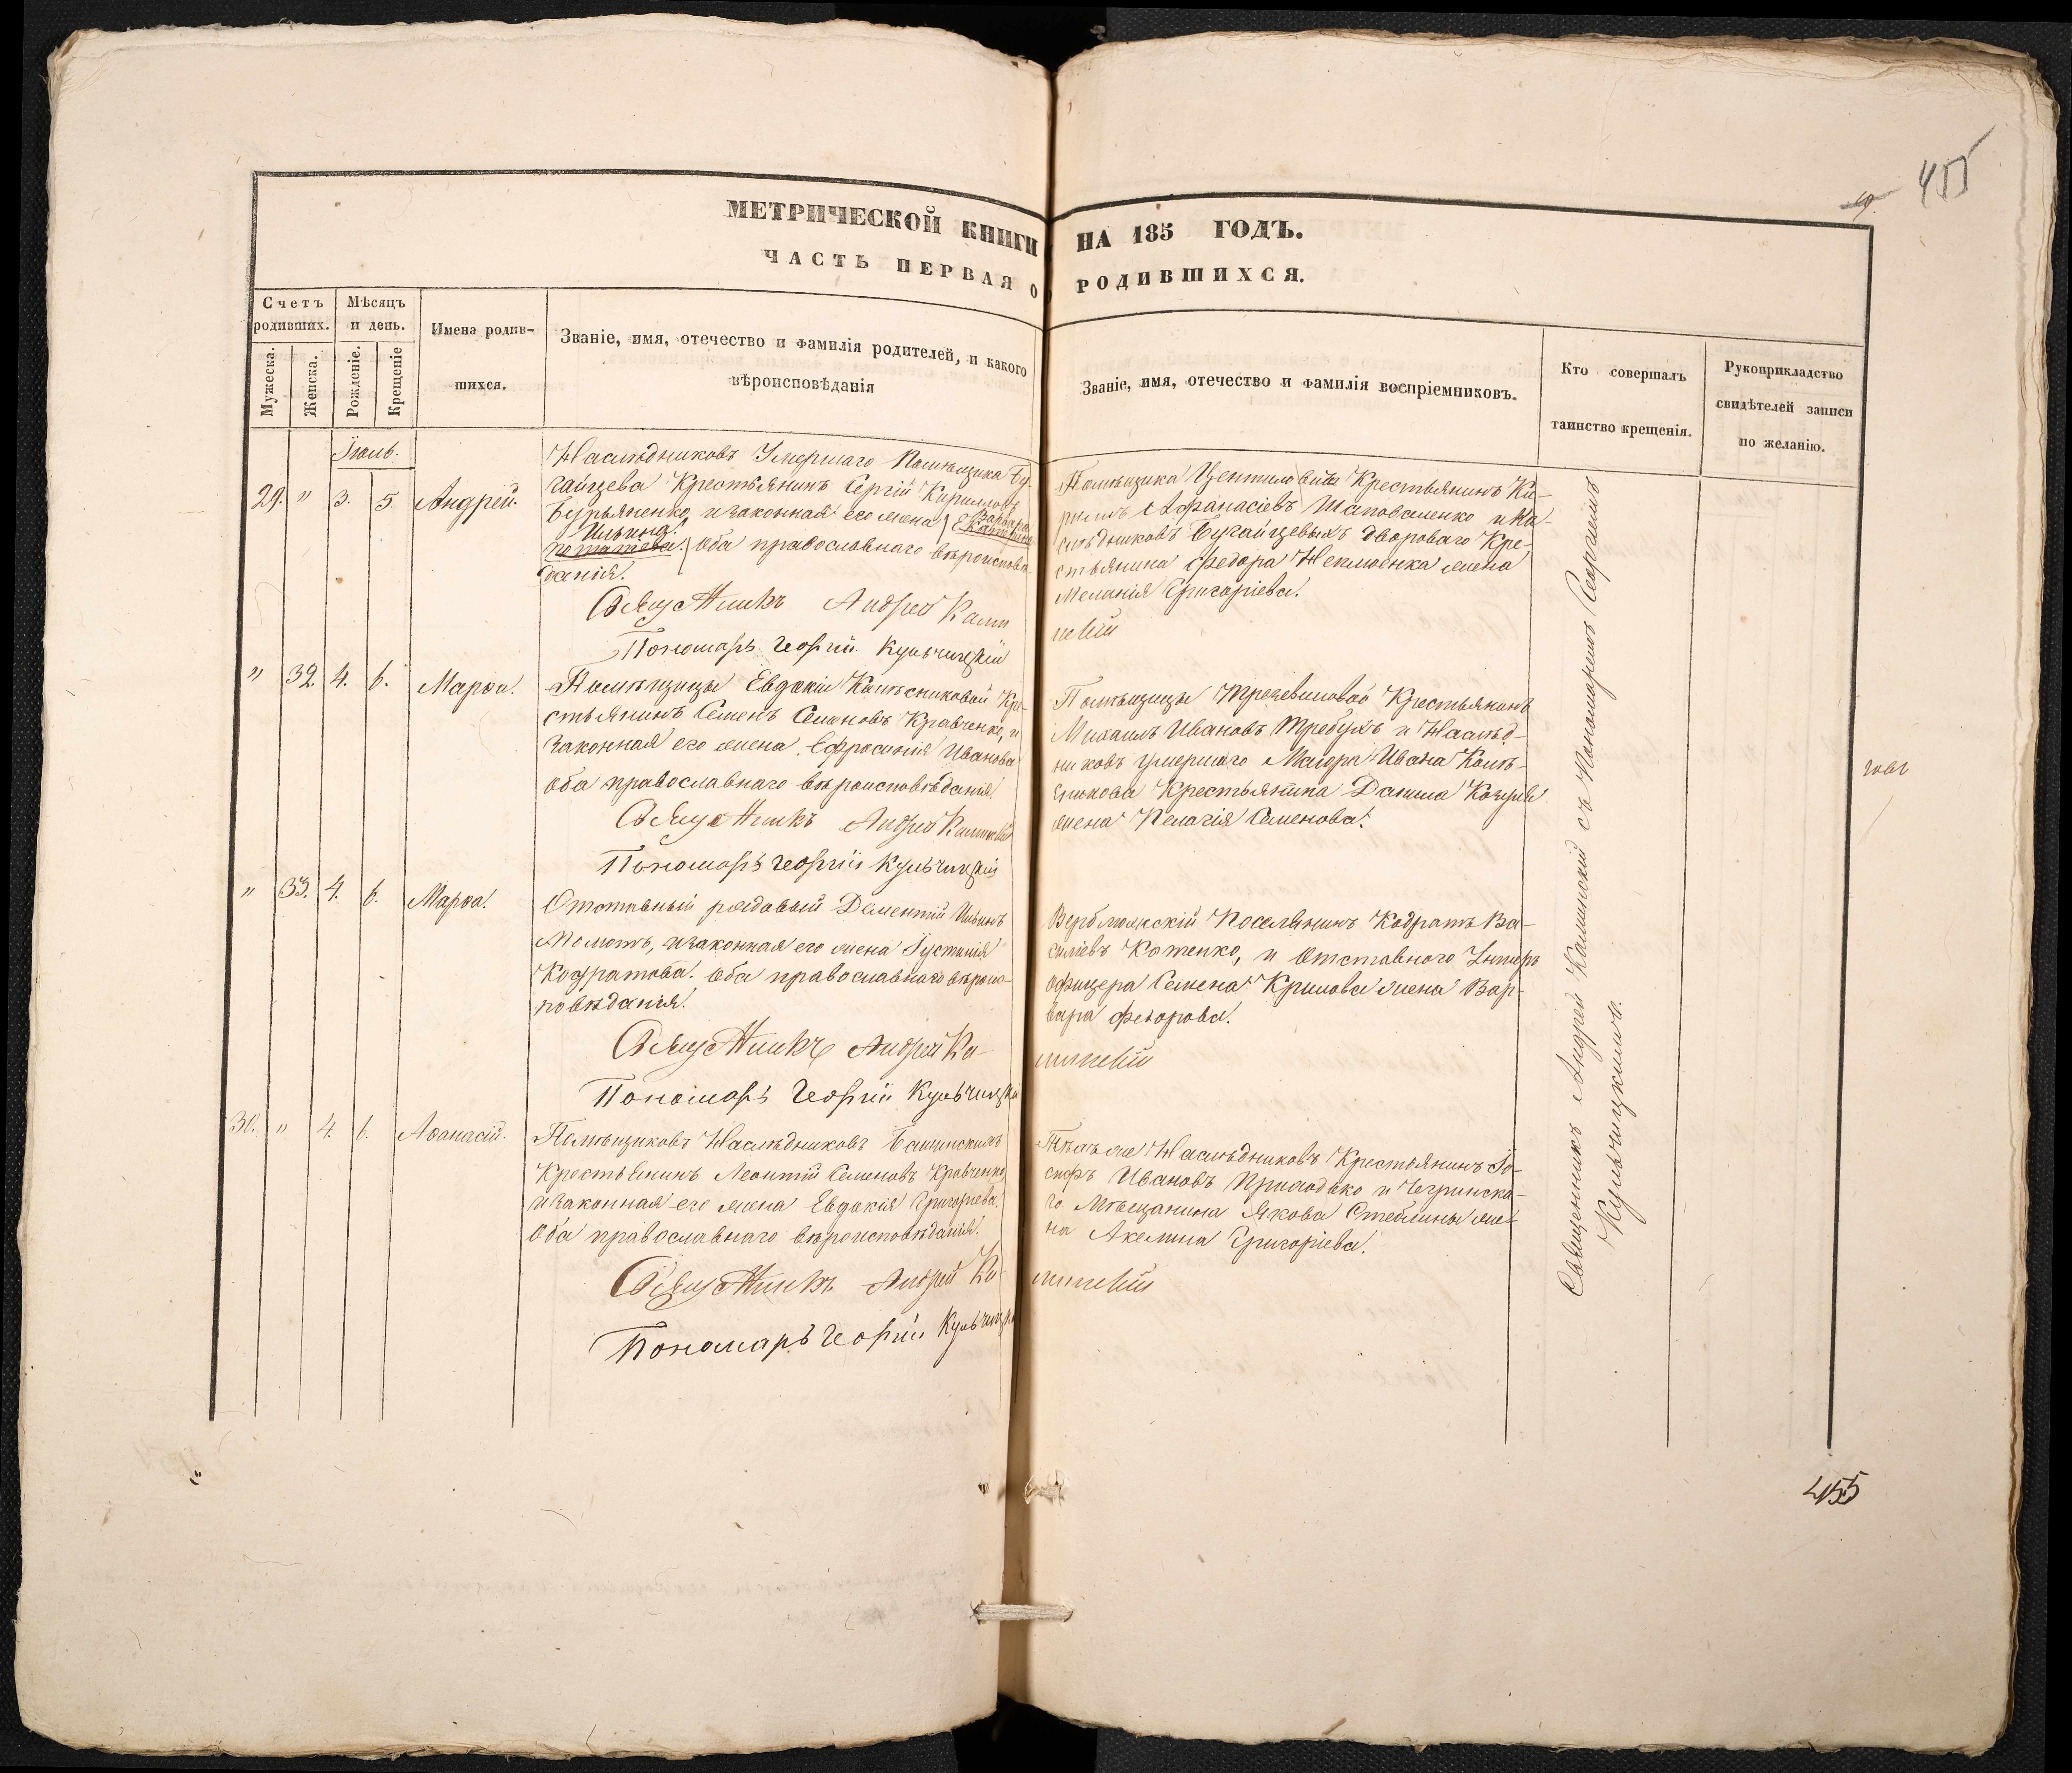 455
МЕТРИЧЕСКОЙ КНИГИ НА 185 ГОДЪ.
ЧАСТЬ ПЕРВАЯ О РОДИВШИХСЯ.
Счетъ родивших.
Мужеска.
Женска.
Мѣсяцъ и день.
Рожденіе.
Крещеніе
Имена родив-
шихся.
Званіе, имя, отечество и фамилія родителей, и какого
вѣроисповѣданія
Званіе, имя, отечество и фамилія воспріемниковъ.
Кто совершалъ
таинство крещенія.
Рукоприкладство
свидѣтелей записи
по желанію.
Іюль.
29. " 3. 5. Андрей.
Наслѣдниковъ Умершаго Помѣщика Бу-
гайцева Крестьянинъ Сергій Кирилловъ
Бурьяненко, и законная его жена Варвара
Ильина. Оба православнаго вѣроисповѣ-
данія.
Священникъ Андрей
Пономарь Георгій Кульчицкій
Помѣщика Крестьянинъ Ки-
риллъ Афанасіевъ Шаповаленко и На-
слѣдниковъ Бугайцевыхъ двороваго Кре-
стьянина Федора жена
Меланія Григоріева.
" 32. 4. 6. Марѳа.
Помѣщицы Евдокіи Колѣсниковой Кре-
стьянинъ Семенъ Семеновъ Кравченко, и
законная его жена Ефросинія Иванова
Оба православнаго вѣроисповѣданія.
Священникъ Андрей
Пономарь Георгій Кульчицкій
Помѣщицы Крестьянинъ
Михаилъ Ивановъ Требухъ и Наслѣд-
никовъ умершаго Маіора Ивана Колѣ-
сникова Крестьянина Данила
жена Пелагія Семенова.
" 33. 4. 6. Марѳа.
Отставный рядовый Дементій Ильинъ
Моломъ, и законная его жена Іустинія
Кодратова. Оба православнаго вѣроис-
повѣданія.
Священникъ Андрей Ка-
Пономарь Георгій Кульчицкій
Верблюжскій Поселянинъ Кодратъ Ва-
силіевъ Котенко, и Отставного Унтеръ
офицера Семена Крилова жена Вар-
вара Федорова.
30. " 4. 6. Аѳанасій.
Помѣщиковъ Наслѣдниковъ
Крестьянинъ Леонтій Семеновъ Кравченко,
и законная его жена Евдокія Григорьева.
Оба православнаго вѣроисповѣданія.
Священникъ Андрей Ка-
Пономарь Георгій
Тѣхъ же Наслѣдниковъ Крестьянинъ Іо-
сифъ Ивановъ Приходько и Чегринска-
го Мѣщанина Якова Стеблины же-
на Акелина Григоріева.
Священникъ Андрей Калинскій съ Пономаремъ Георгіемъ
Кульчицкимъ.
455